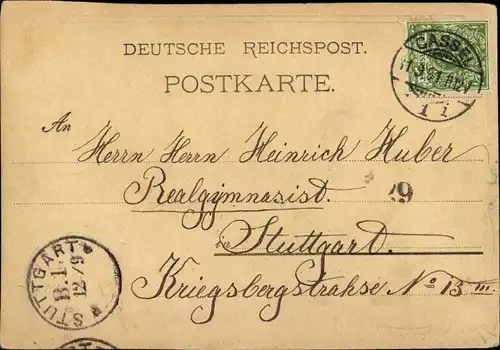 DEUTSCHE REICHSPOST.
POSTKARTE.
CASSEL
1 i
An
Herrn Herrn Heinrich Huber
Realgymnasist.
29
in Stuttgart.
Kriegsbergstrahse No 13 III.
STUTTGART
B.1.
12/9